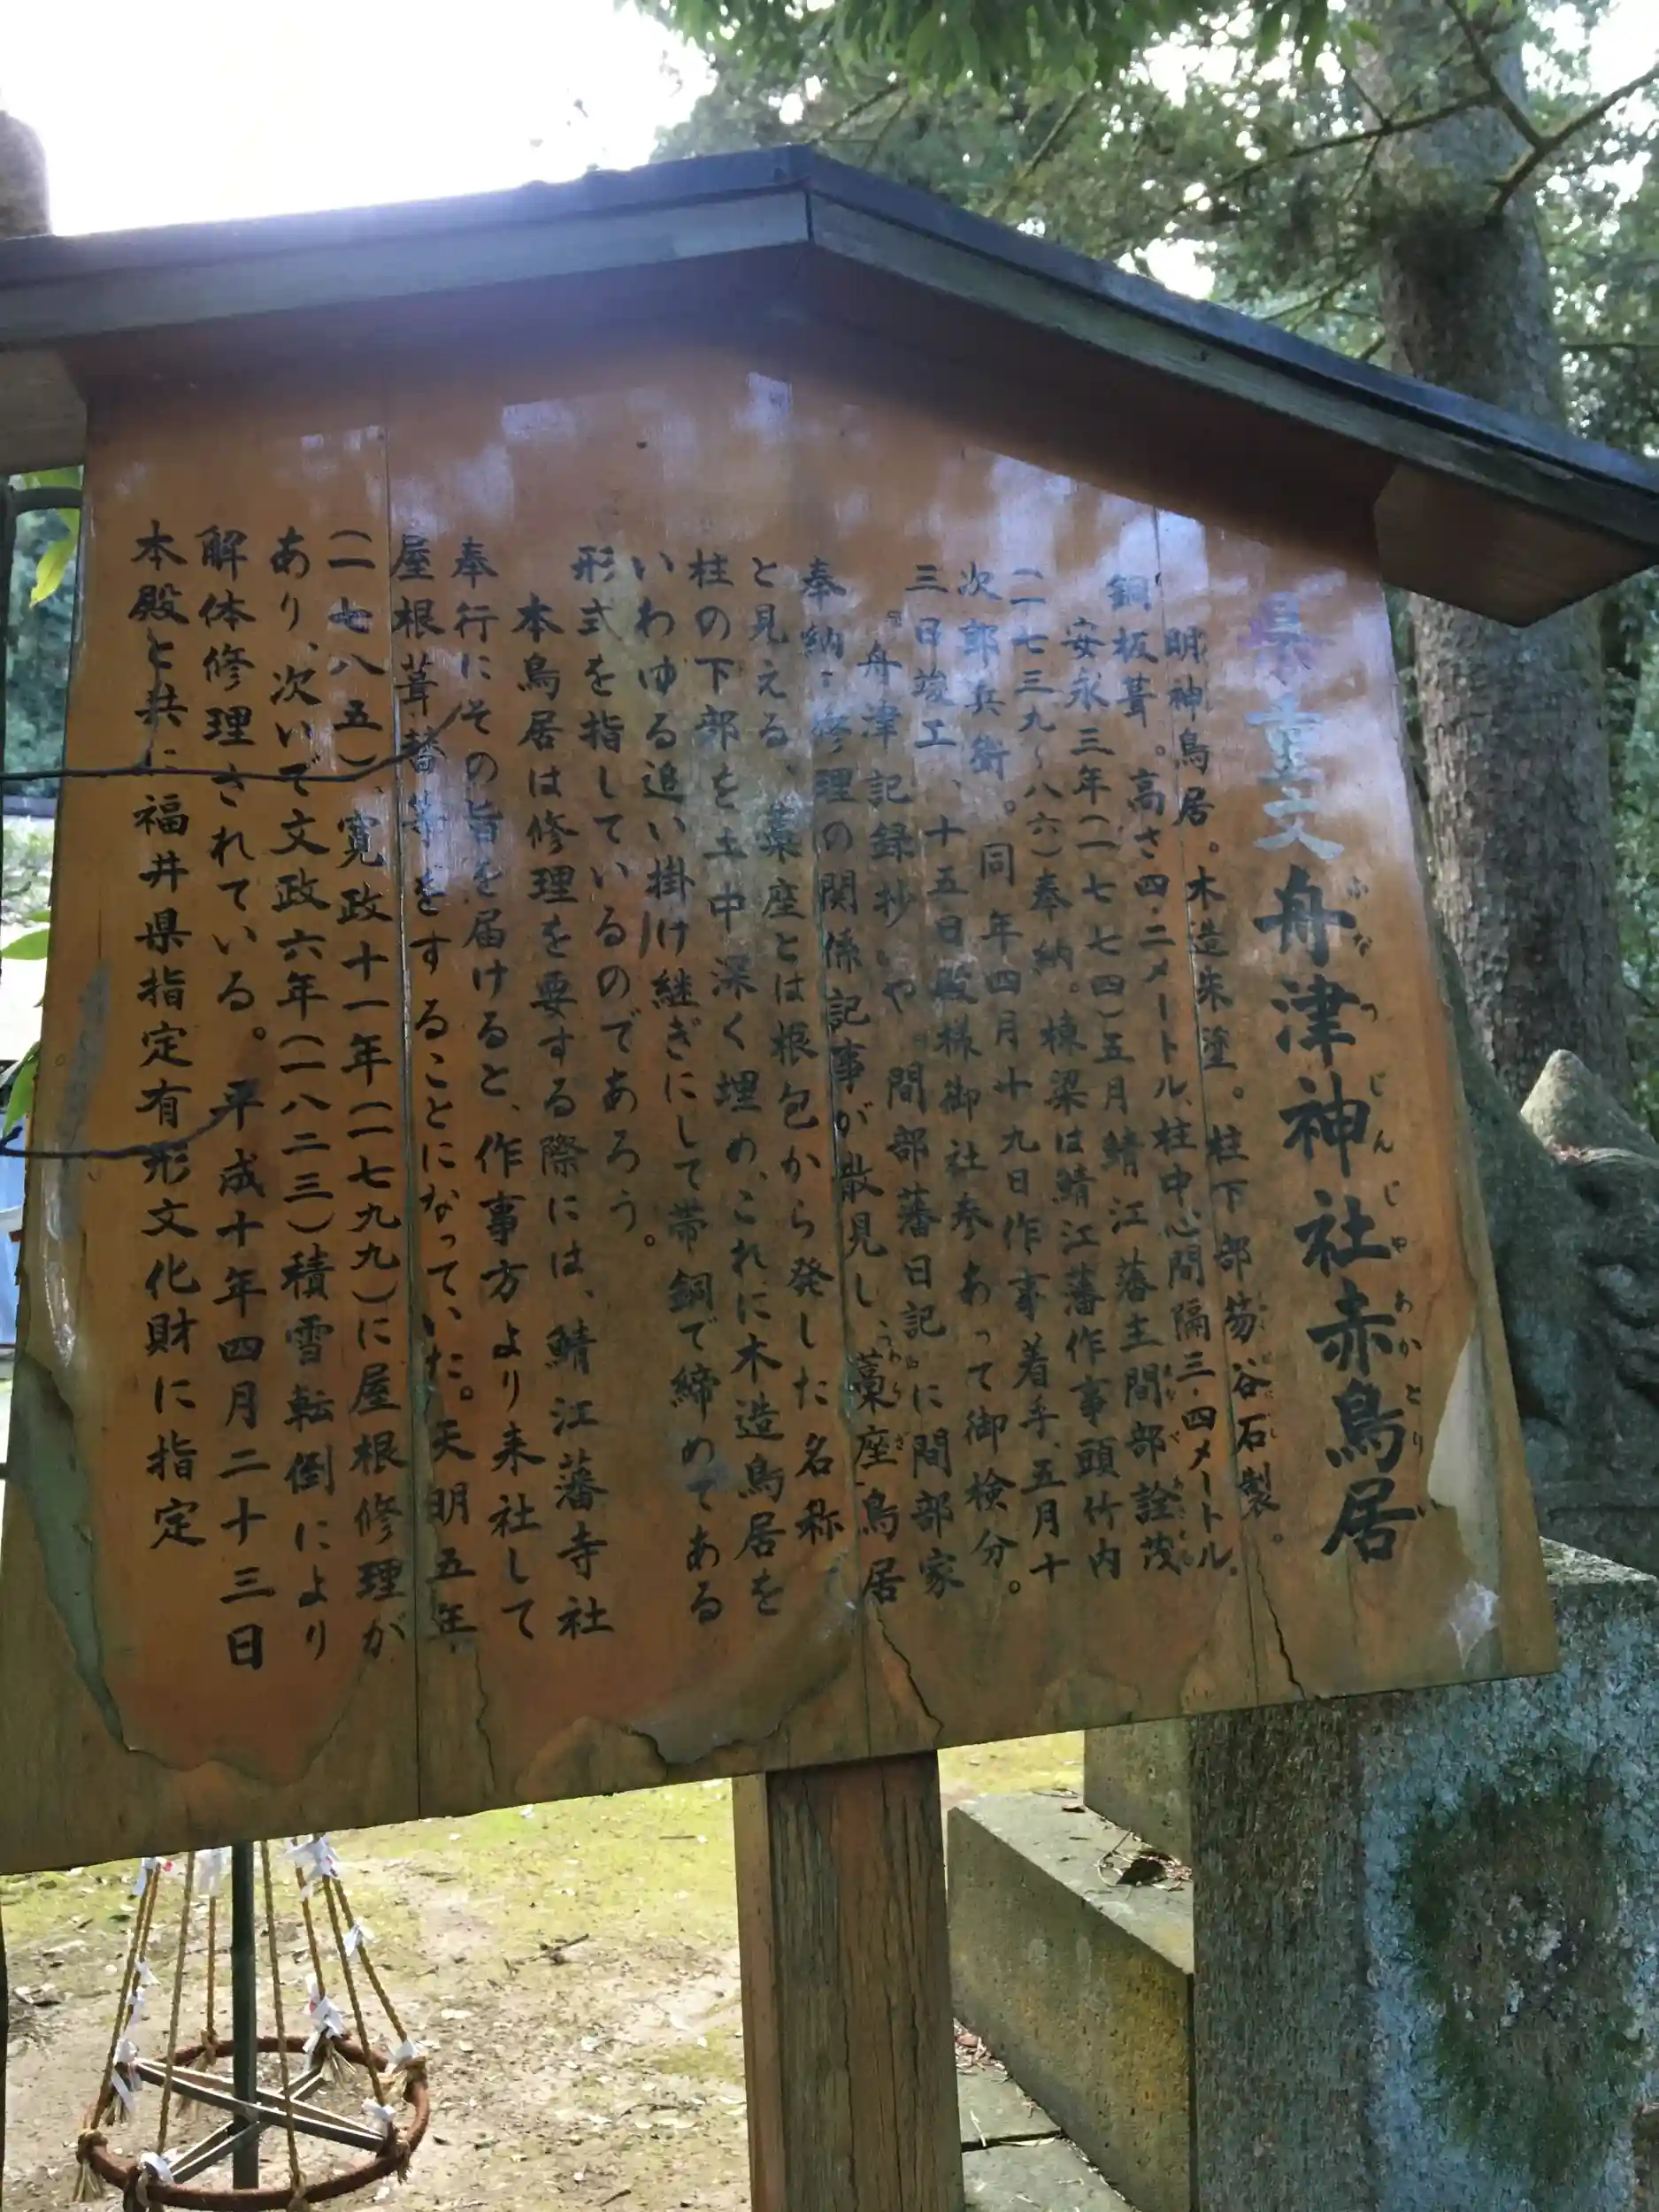 県重文 舟津神社赤鳥居
ふなつじんじゃあかとりい
明神鳥居。木造朱塗。柱下部笏谷石製。
銅板葺。高さ四・二メートル、柱中心間隔三・四メートル。
安永三年(一七七四)五月鯖江藩主間部詮茂
(一七三九〜八六)奉納。棟梁は鯖江藩作事頭竹内
次郎兵衛。同年四月十九日作事着手、五月十
三日竣工、十五日殿様御社参あって御検分。
『舟津記録抄』や『間部藩日記』に間部家
奉納・修理の関係記事が散見し、藁座鳥居
と見える、藁座とは根包から発した名称
柱の下部を土中深く埋め、これに木造鳥居を
いわゆる追い掛け継ぎにして帯銅で締めてある
形式を指しているのであろう。
本鳥居は修理を要する際には、鯖江藩寺社
奉行にその旨を届けると、作事方より来社して
屋根葺替等をすることになっていた。天明五年
(一七八五)、寛政十一年(一七九九)に屋根修理が
あり、次いで文政六年(一八二三)積雪転倒により
解体修理されている。平成十年四月二十三日
本殿と共に福井県指定有形文化財に指定